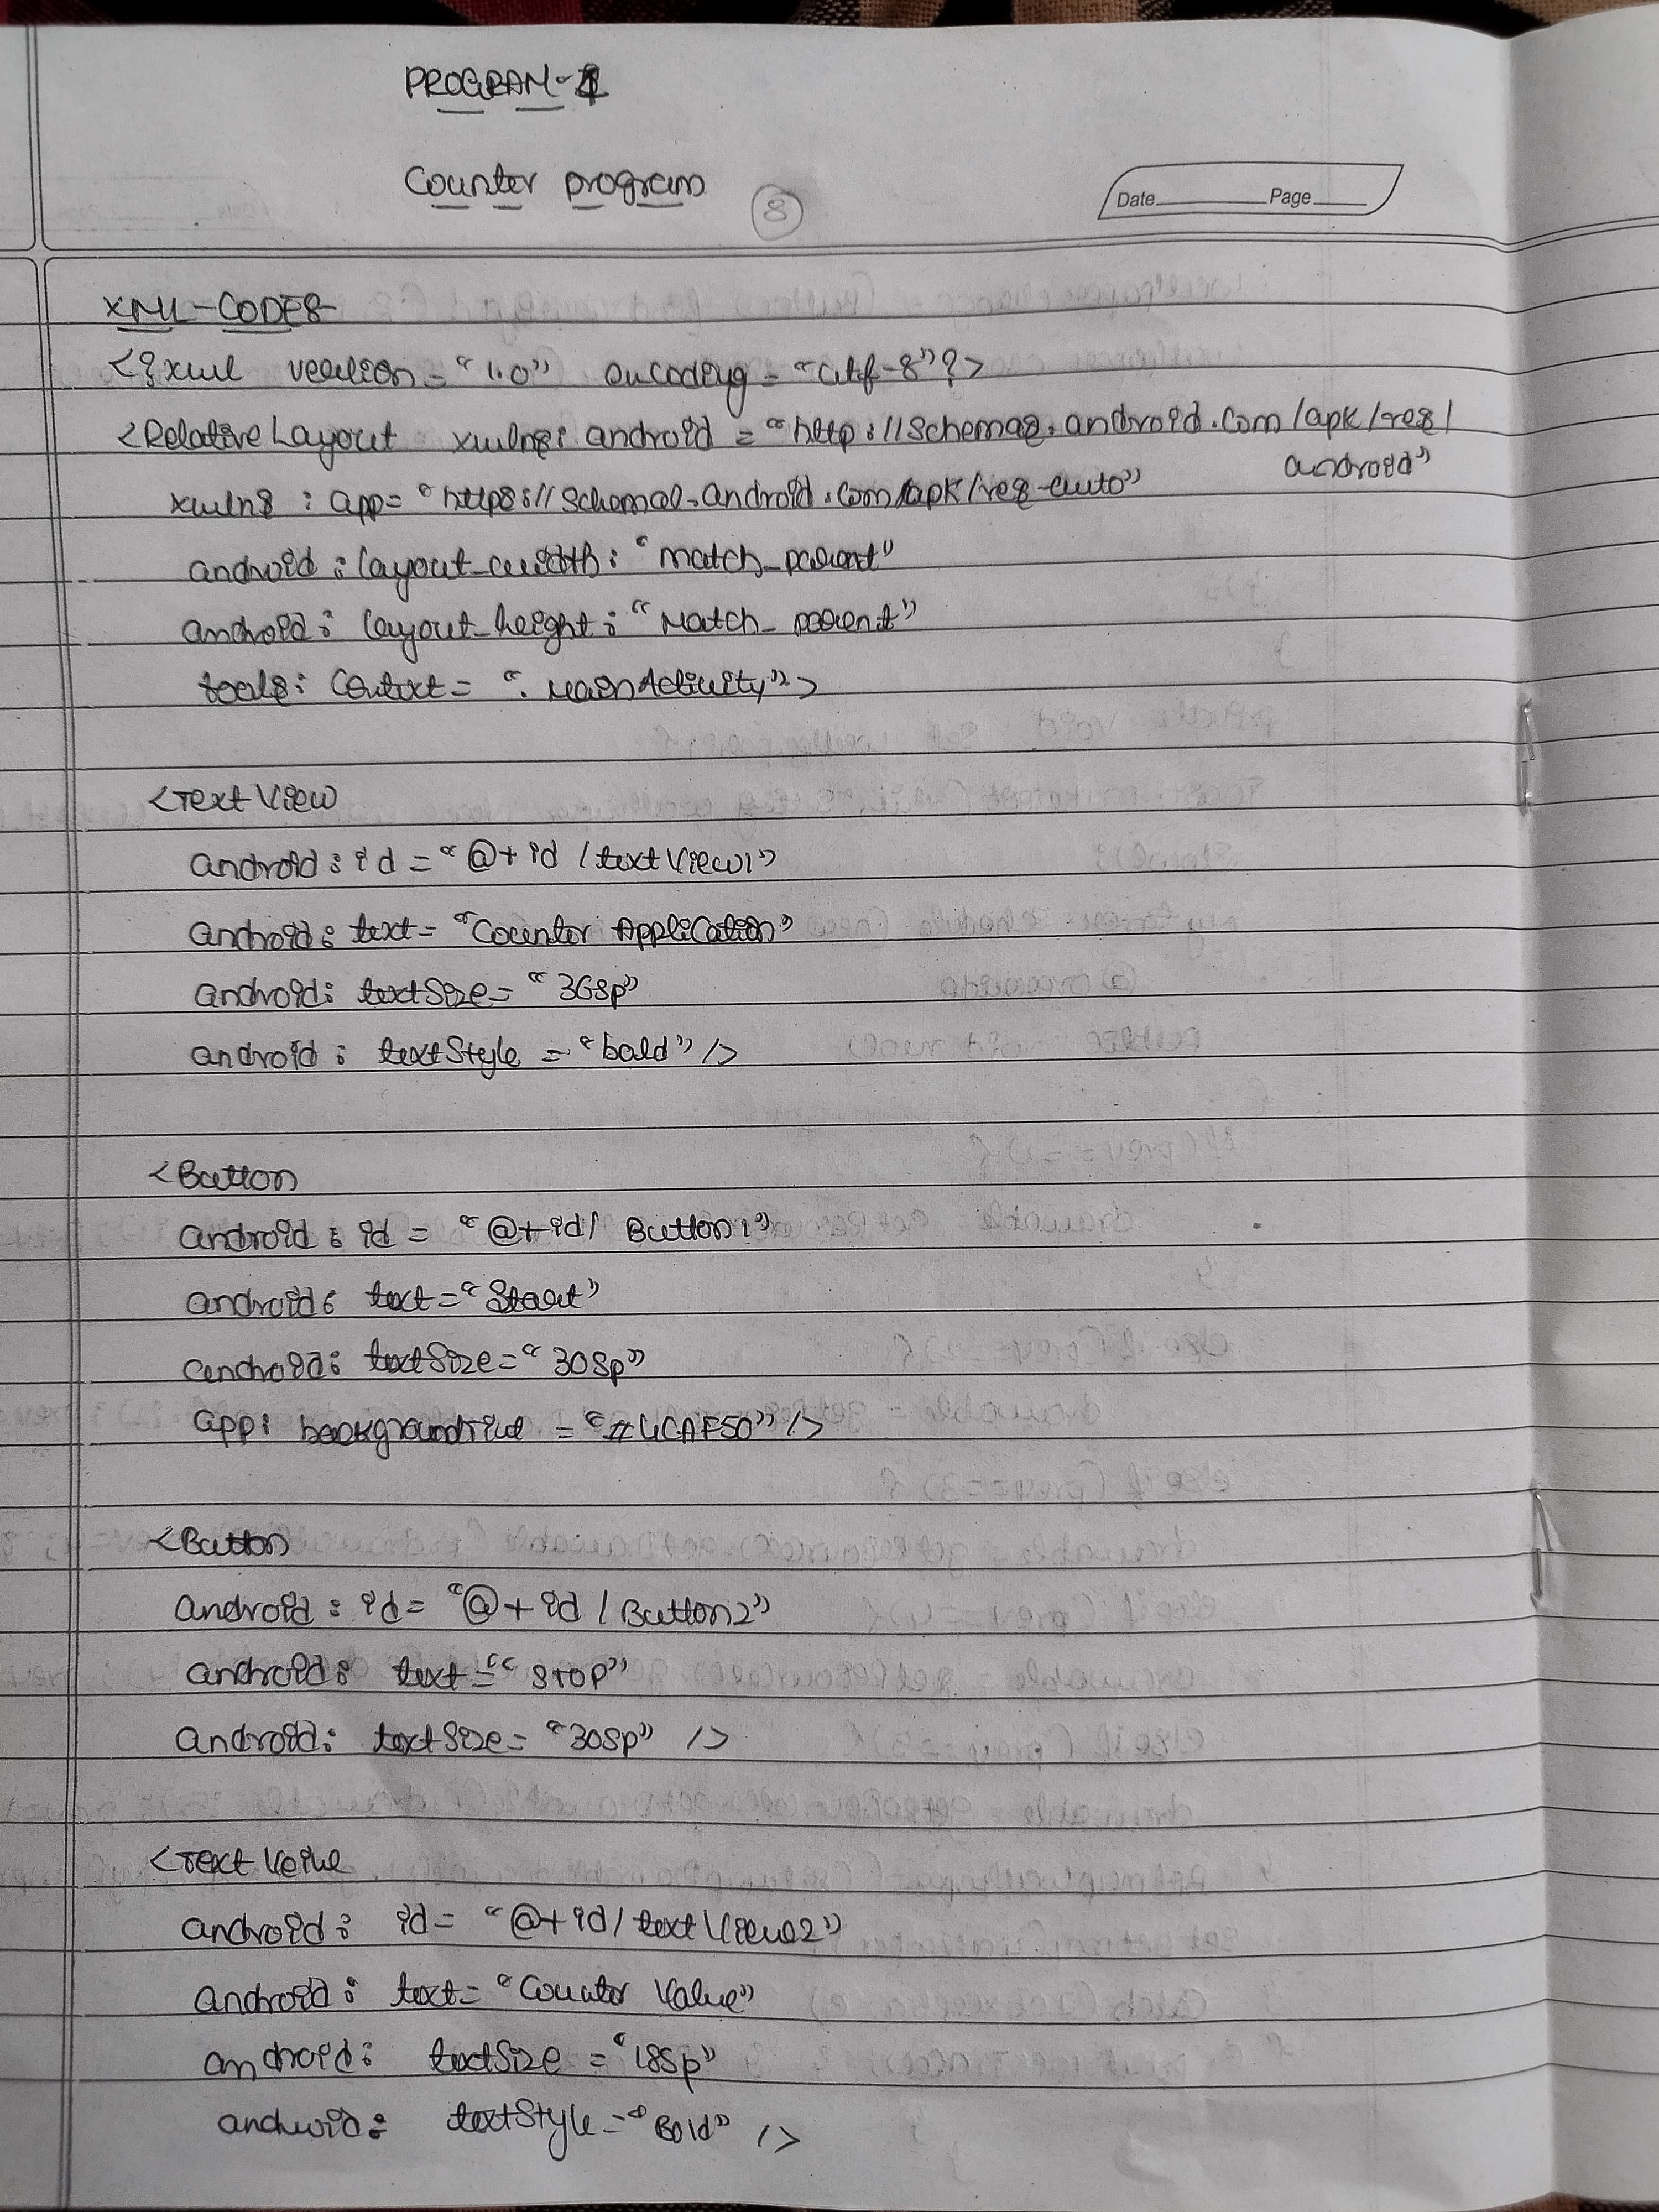 PROGRAM-4
Counter program
8
Date Page
XML-CODE:-
<?xml version = "1.0" encoding = "utf-8"?>
<RelativeLayout xmlns: android = "http://schemas.android.com/apk/res/
android"
xmlns : app= "https://schemas.android.com/apk/res-auto"
android : layout_width: "match_parent"
android: layout_height: "Match_parent"
tools: Context = ". MainActivity">
<TextView
android: id = "@+id /textView1"
android: text= "Counter Application"
android: textSize= "36sp"
android: textStyle = "bold" />
<Button
android : id = "@+id/ Button1"
android: text="Start"
android: textSize="30sp"
app: backgroundtint = "#4CAF50" />
<Button
android : id= "@+id /Button2"
android: text="STOP"
android: textSize= "30sp" />
<Text Veiw
android: id= "@+id/ textView2"
android: text= "Counter Value"
android: textSize = "18sp"
android: textStyle="Bold" />